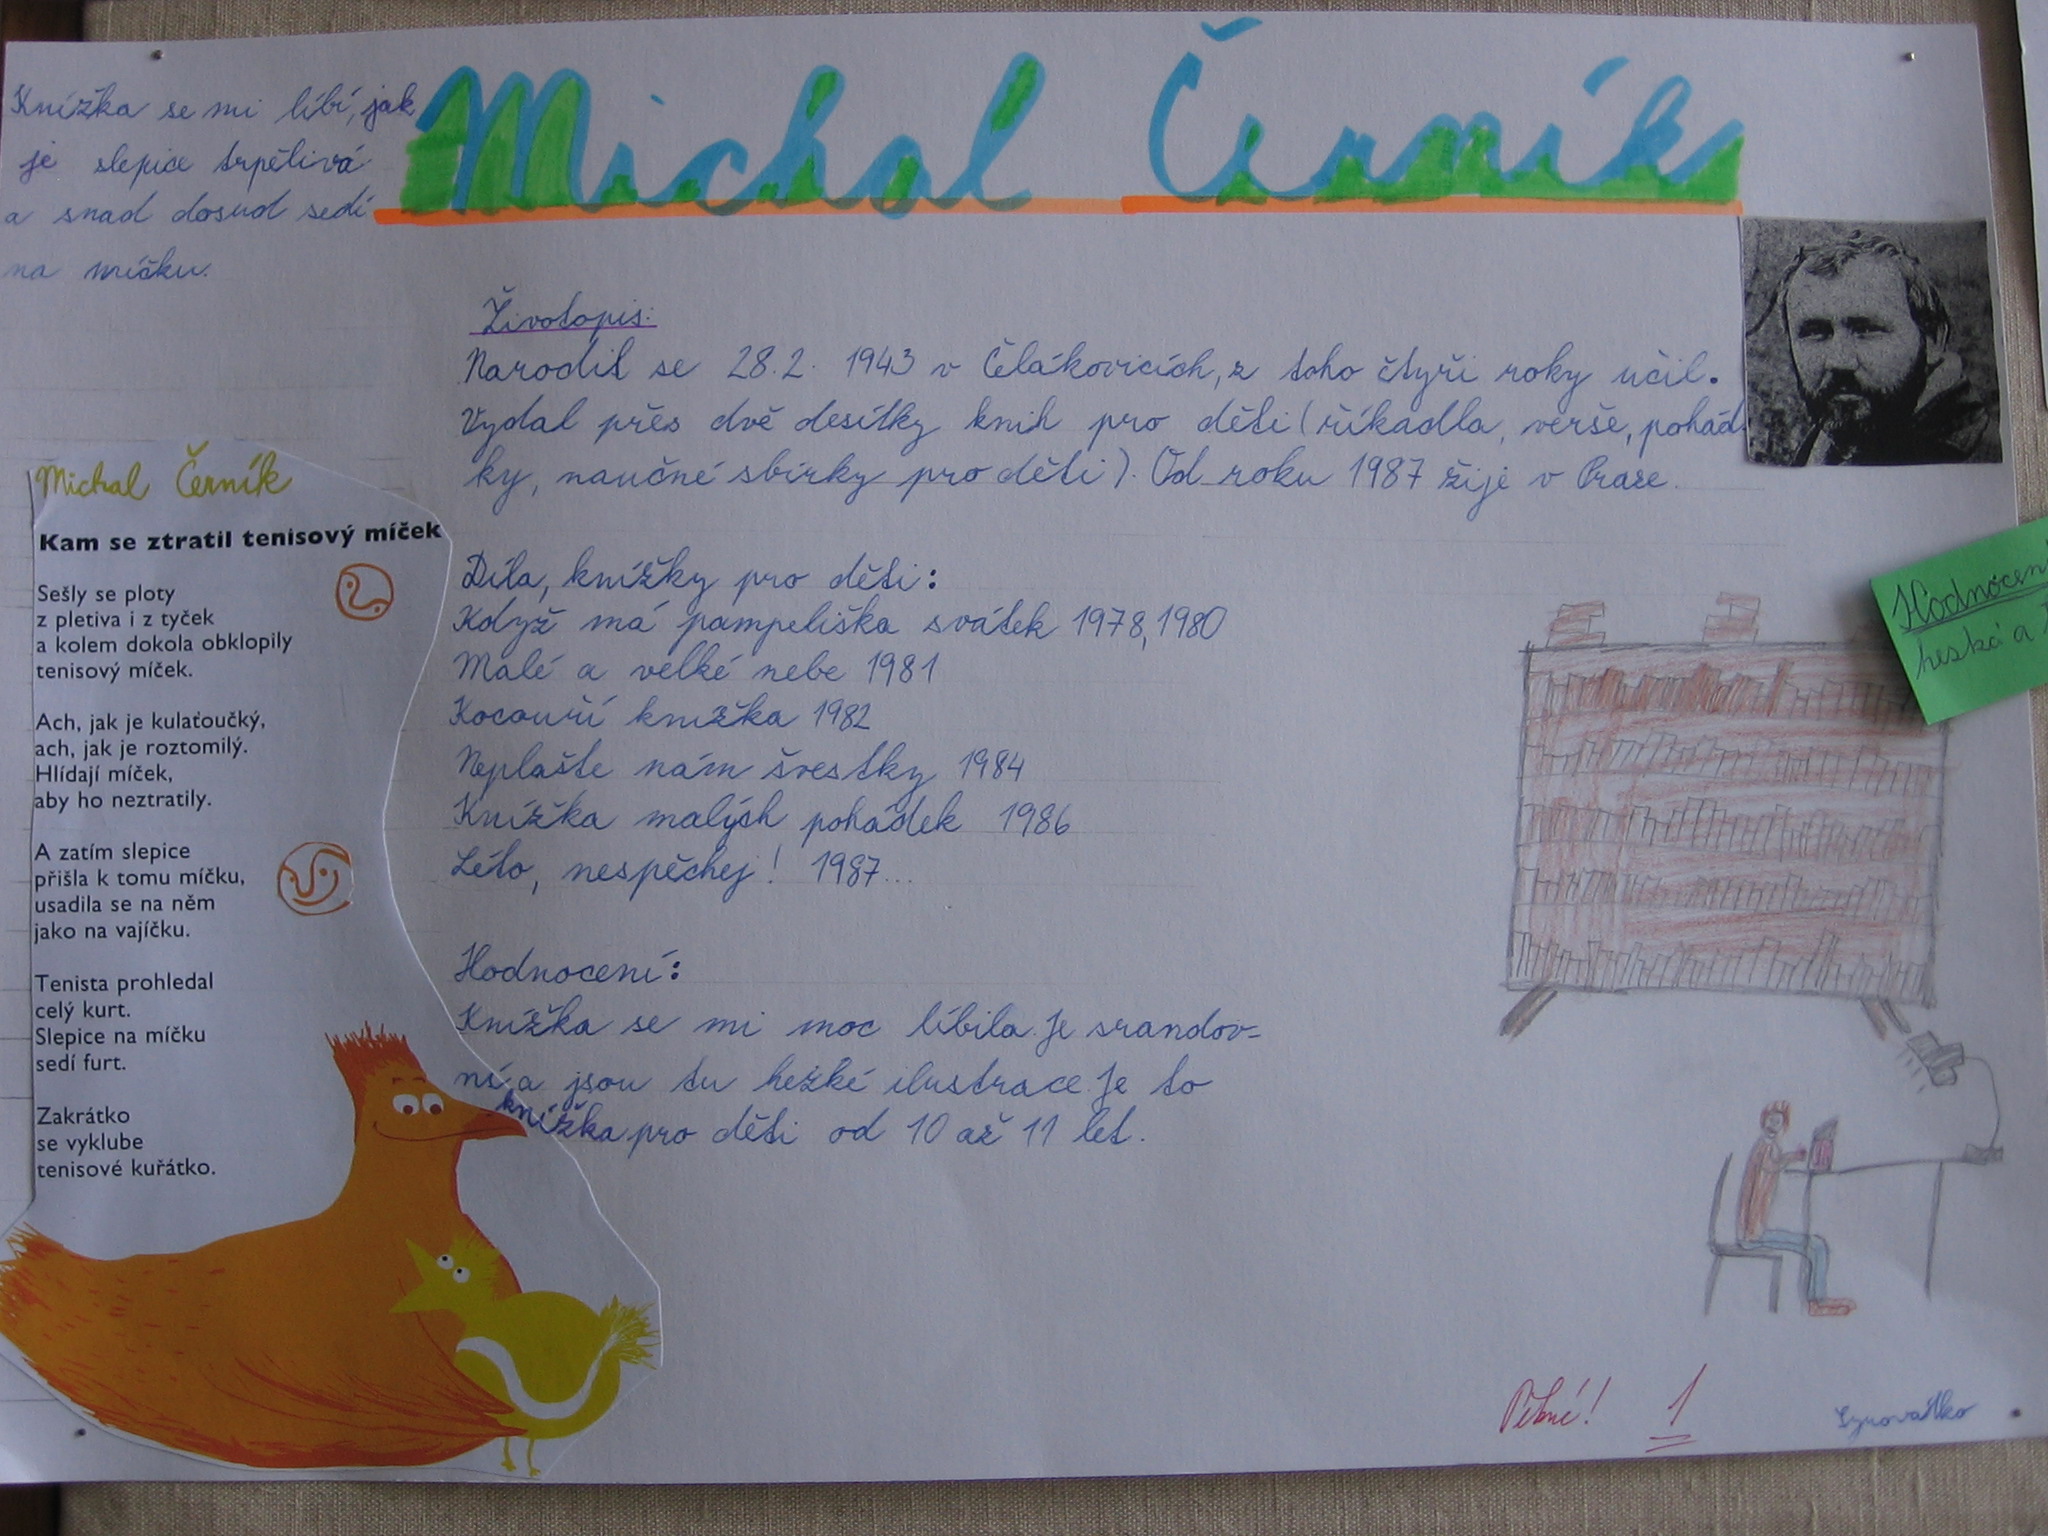 Michal Černík
Knížka se mi líbí, jak
je slepice trpělivá
a snad dosud sedí
na míčku.
Životopis:
Narodil se 28.2. 1943 v Čelákovicích, z toho čtyři roky učil.
Vydal přes dvě desítky knih pro děti (říkadla, verše, pohád
ky, naučné sbírky pro děti). Od roku 1987 žije v Praze.
Díla, knížky pro děti:
Když má pampeliška svátek 1978, 1980
Malé a velké nebe 1981
Kocouří knížka 1982
Neplašte nám švestky 1984
Knížka malých pohádek 1986
Léto, nespěchej! 1987...
Hodnocení:
Knížka se mi moc líbila. Je srandov-
ní a jsou tu hežké ilustrace. Je to
knížka pro děti od 10 až 11 let.
Michal Černík
Kam se ztratil tenisový míček
Sešly se ploty
z pletiva i z tyček
a kolem dokola obklopily
tenisový míček.
Ach, jak je kulaťoučký,
ach, jak je roztomilý.
Hlídají míček,
aby ho neztratily.
A zatím slepice
přišla k tomu míčku,
usadila se na něm
jako na vajíčku.
Tenista prohledal
celý kurt.
Slepice na míčku
sedí furt.
Zakrátko
se vyklube
tenisové kuřátko.
Hodnocen
heská a
Pěkné! 1